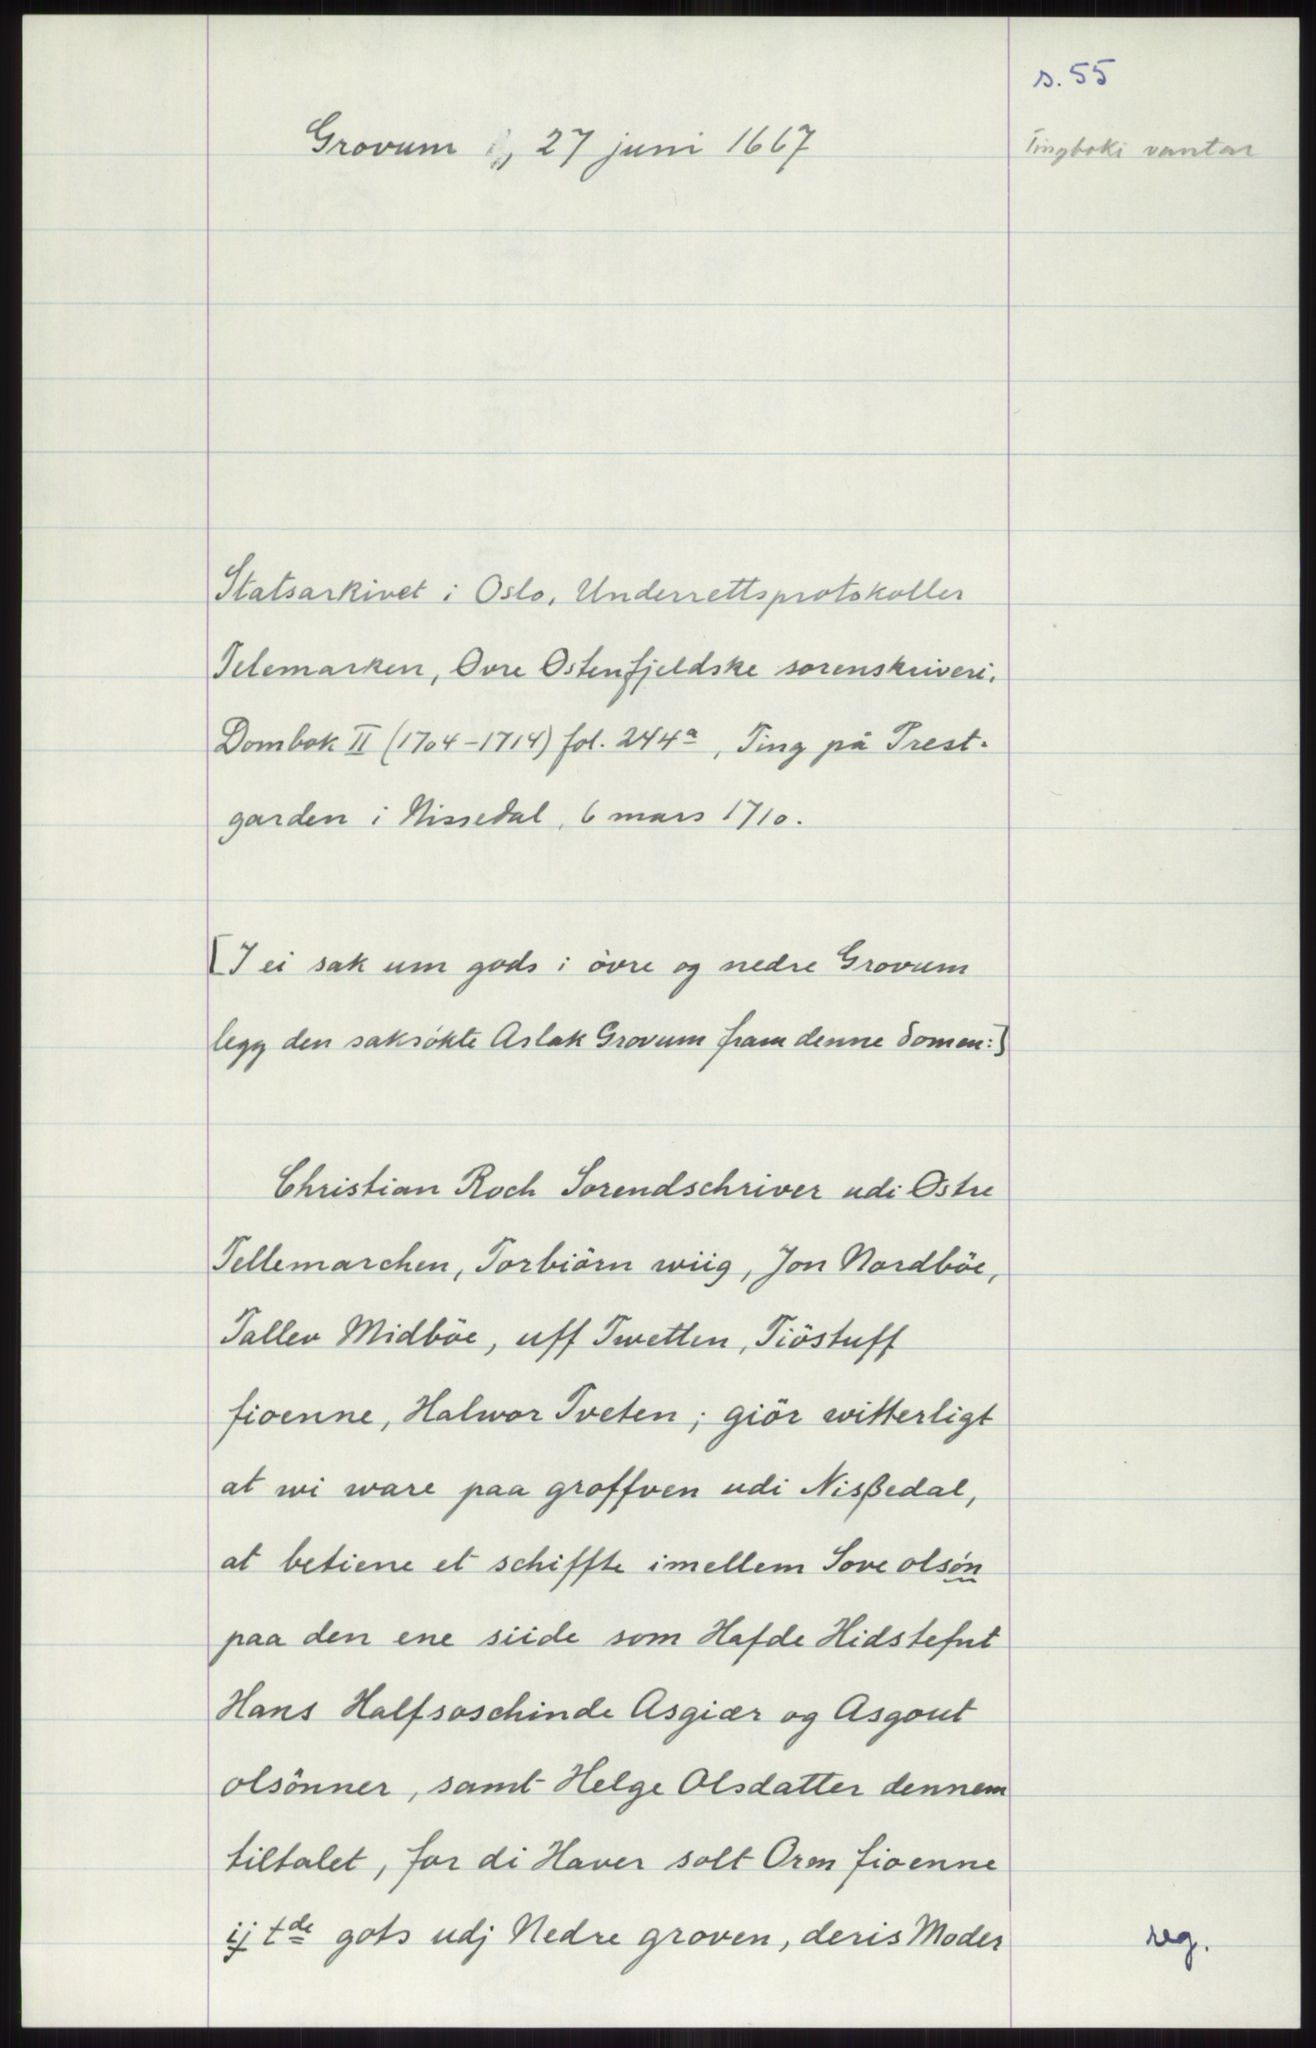 s. 55
Grovum „ 27 juni 1667
Tingboki vantar
Statsarkivet i Oslo, Underrettsprotokoller
Telemarken, Øvre Østenfjeldske sorenskriveri.
Dombok II (1704-1714) fol. 244a, Ting på Prest-
garden i Nissedal, 6 mars 1710.
[I ei sak um gods i övre og nedre Grovum
legg den saksökte Aslak Grovum fram denne domen:]
Christian Roch Sorendschriver udi Østre
Tellemarchen, Torbiörn wiig, Jon Nordböe,
Tallev Midböe, uff Twetten, Tiöstuff
fioenne, Halwor Tveten; giör witterligt
at wi ware paa groffven udi Nisßedal,
at betiene et schiffte imellem Sove olsön
paa den ene siide som Hafde Hidstefnt
Hans Halfsoschinde Asgiær og Asgout
olsönner, samt Helge Olsdatter dennem
tiltalet, for di Haver solt Orm fioenne
ij tde gots udj Nedre groven, deris Moder
reg.